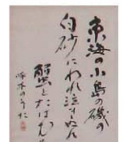 東海の小島の磯の
白砂にわれ泣きぬれ
蟹とたはむ
啄木のうた